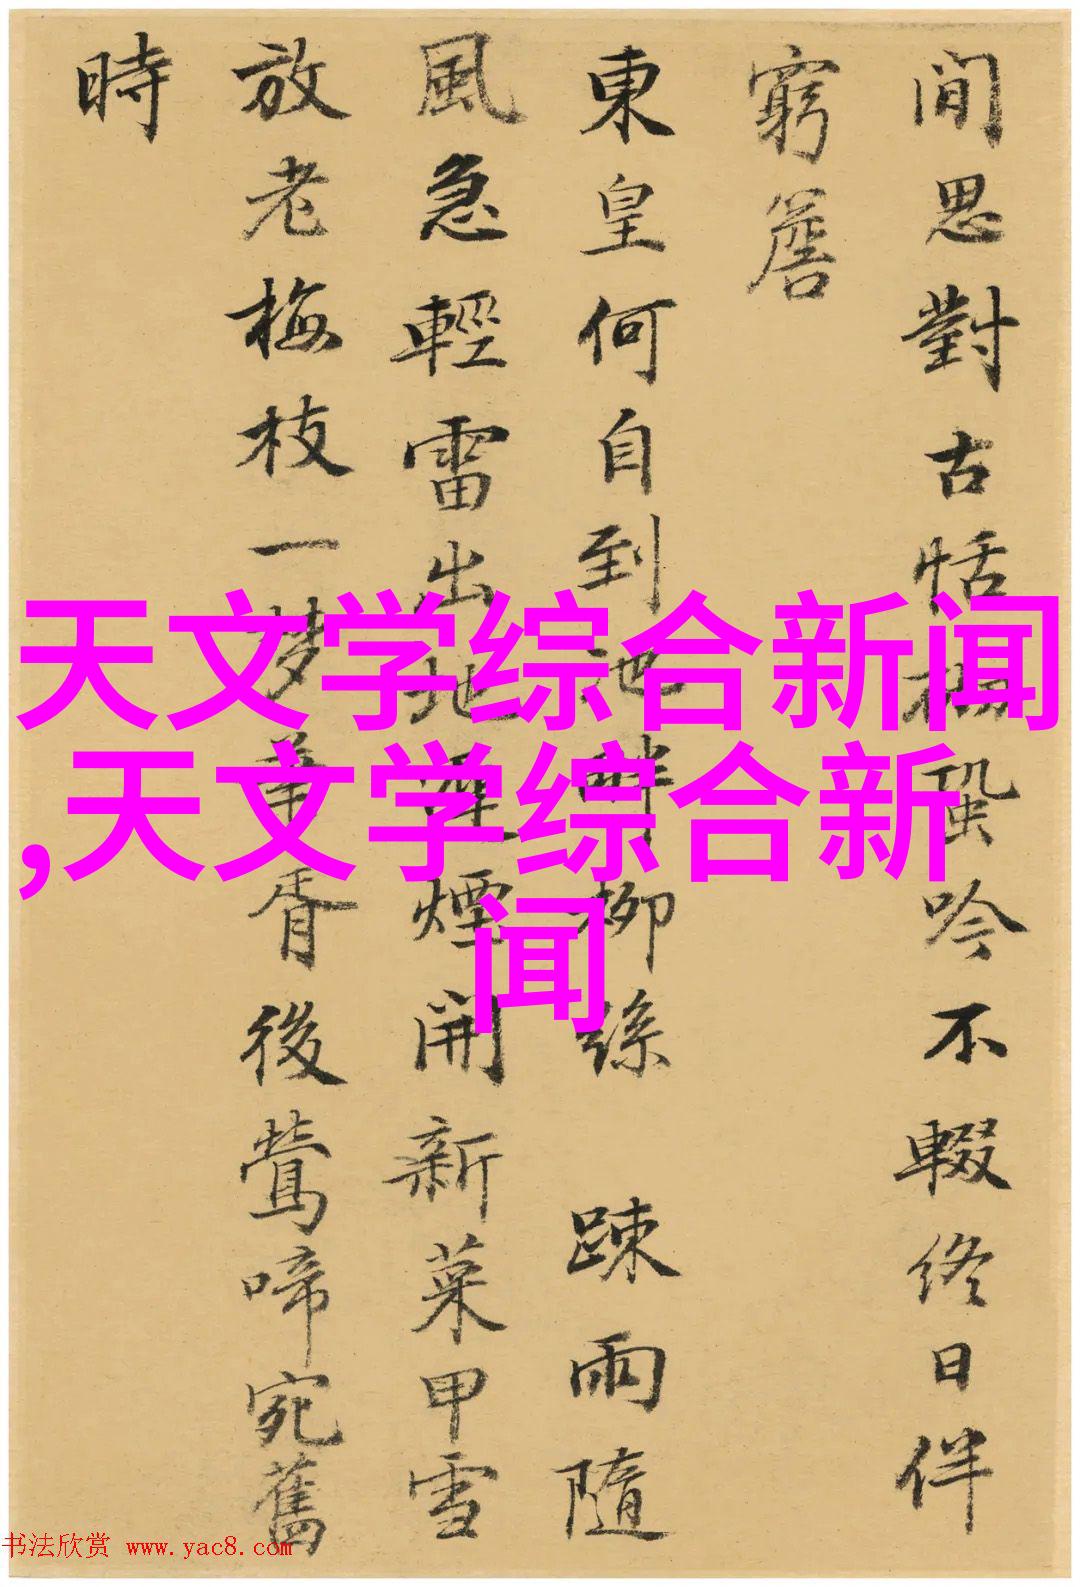 閒思對古恬橅蛩吟不輟終日伴
窮簷
東皇何自到池畔柳絲踈雨隨
風急輕雷出地遲煙開新菜甲雪
放老梅枝一梦華胥後鶯啼宛舊
時
天文学综合新闻
,天文学综合新
闻
书法欣赏 www.yac8.com